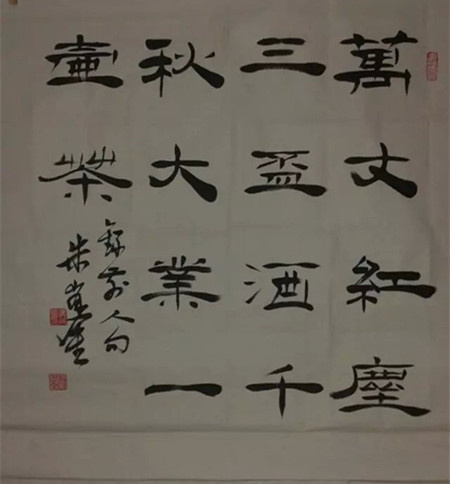 萬丈紅塵
三盃酒千
秋大業一
壷茶
錄前人句
朱